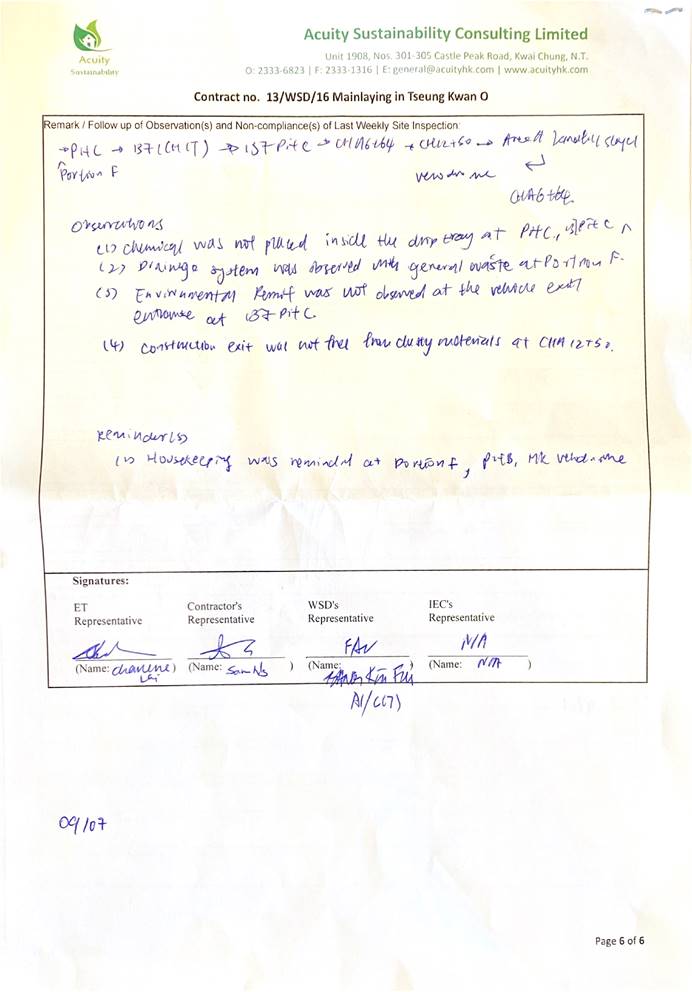 Acuity Sustainability Consulting Limited
Acuity
Sustainability
Unit 1908, Nos. 301-305 Castle Peak Road, Kwai Chung, N.T.
O: 2333-6823 | F: 2333-1316 | E: general@acuityhk.com | www.acuityhk.com
Contract no. 13/WSD/16 Mainlaying in Tseung Kwan O
Remark / Follow up of Observation(s) and Non-compliance(s) of Last Weekly Site Inspection:
→ Pit C → 137 (CHCT) → 137 Pit C → → CH12+50 → Area
Portion F
Observations
(1) Chemical was not placed inside the drip tray at Pit C, 137 Pit C
(2) Drainage system was observed with general waste at Portion F.
(3) Environmental Permit was not observed at the vehicle exit
entrance at 137 Pit C.
(4) Construction exit was not free from dusty materials at CHA 12+50.
Reminder(s)
(1) Housekeeping was reminded at Portion F, Pit B,
Signatures:
ET
Representative
Contractor's
Representative
WSD's
Representative
IEC's
Representative
FAN
N/A
(Name: Charlene Lai)
(Name: Sam Ng )
(Name: Kin Fui )
(Name: N/A )
AI/C(7)
09/07
Page 6 of 6